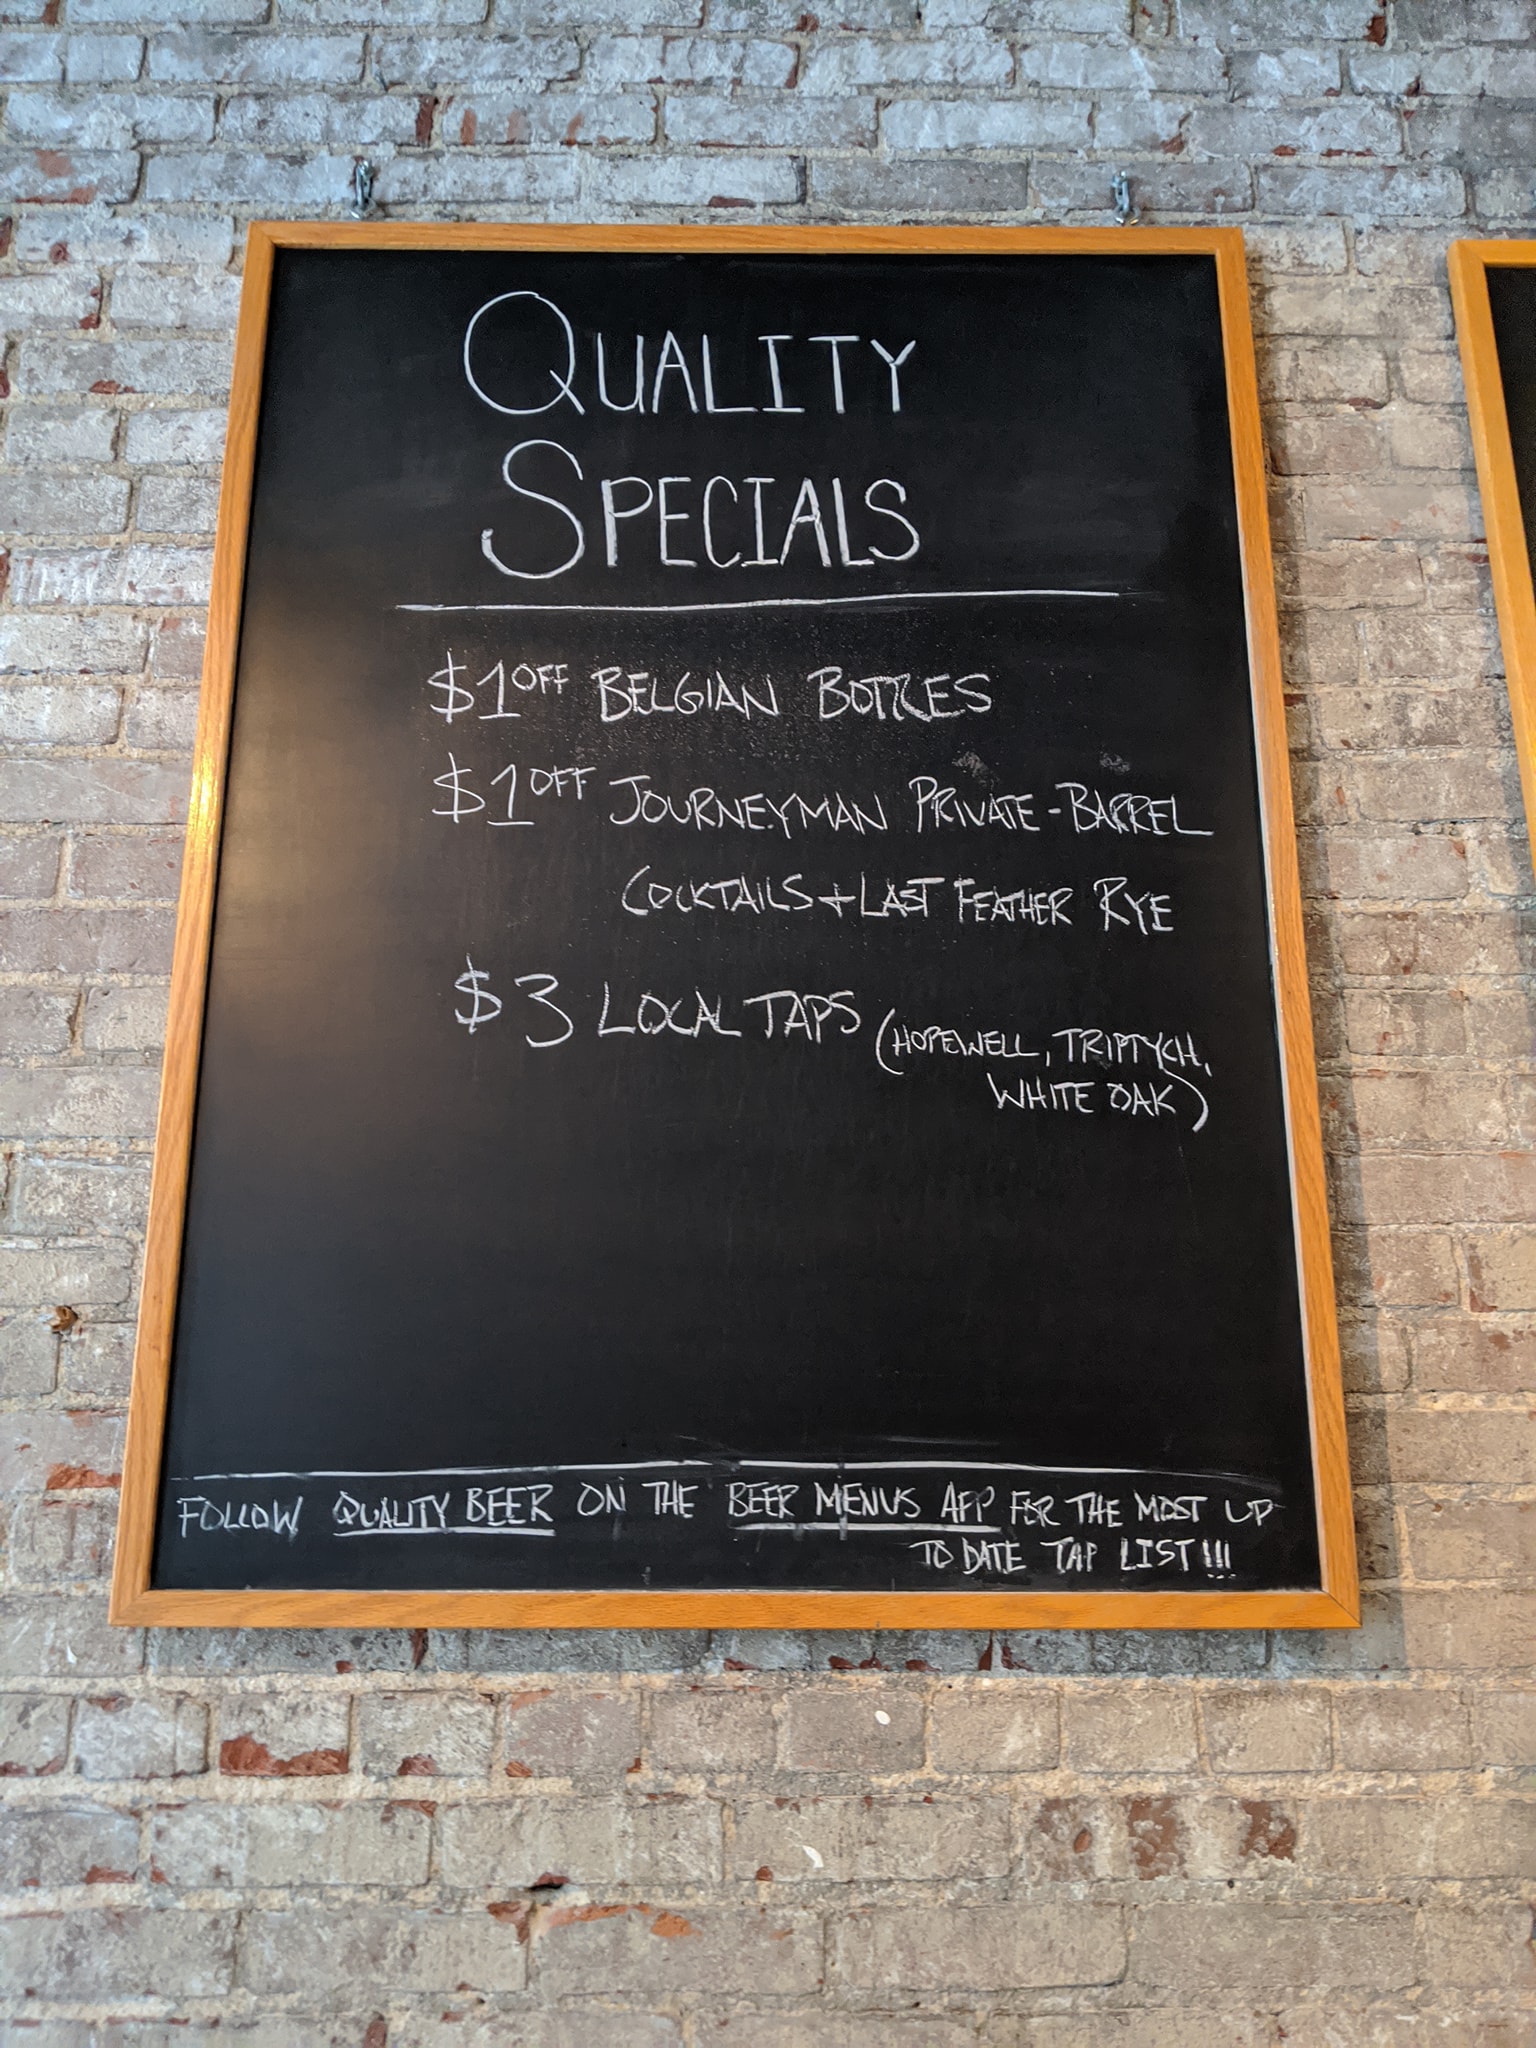 QUALITY
SPECIALS
$1 OFF BELGIAN BOTTLES
$1 OFF JOURNEYMAN PRIVATE-BARREL
COCKTAILS + LAST FEATHER RYE
$3 LOCAL TAPS (HOPEWELL, TRIPTYCH,
WHITE OAK)
FOLLOW QUALITY BEER ON THE BEER MENUS APP FOR THE MOST UP
TO DATE TAP LIST!!!